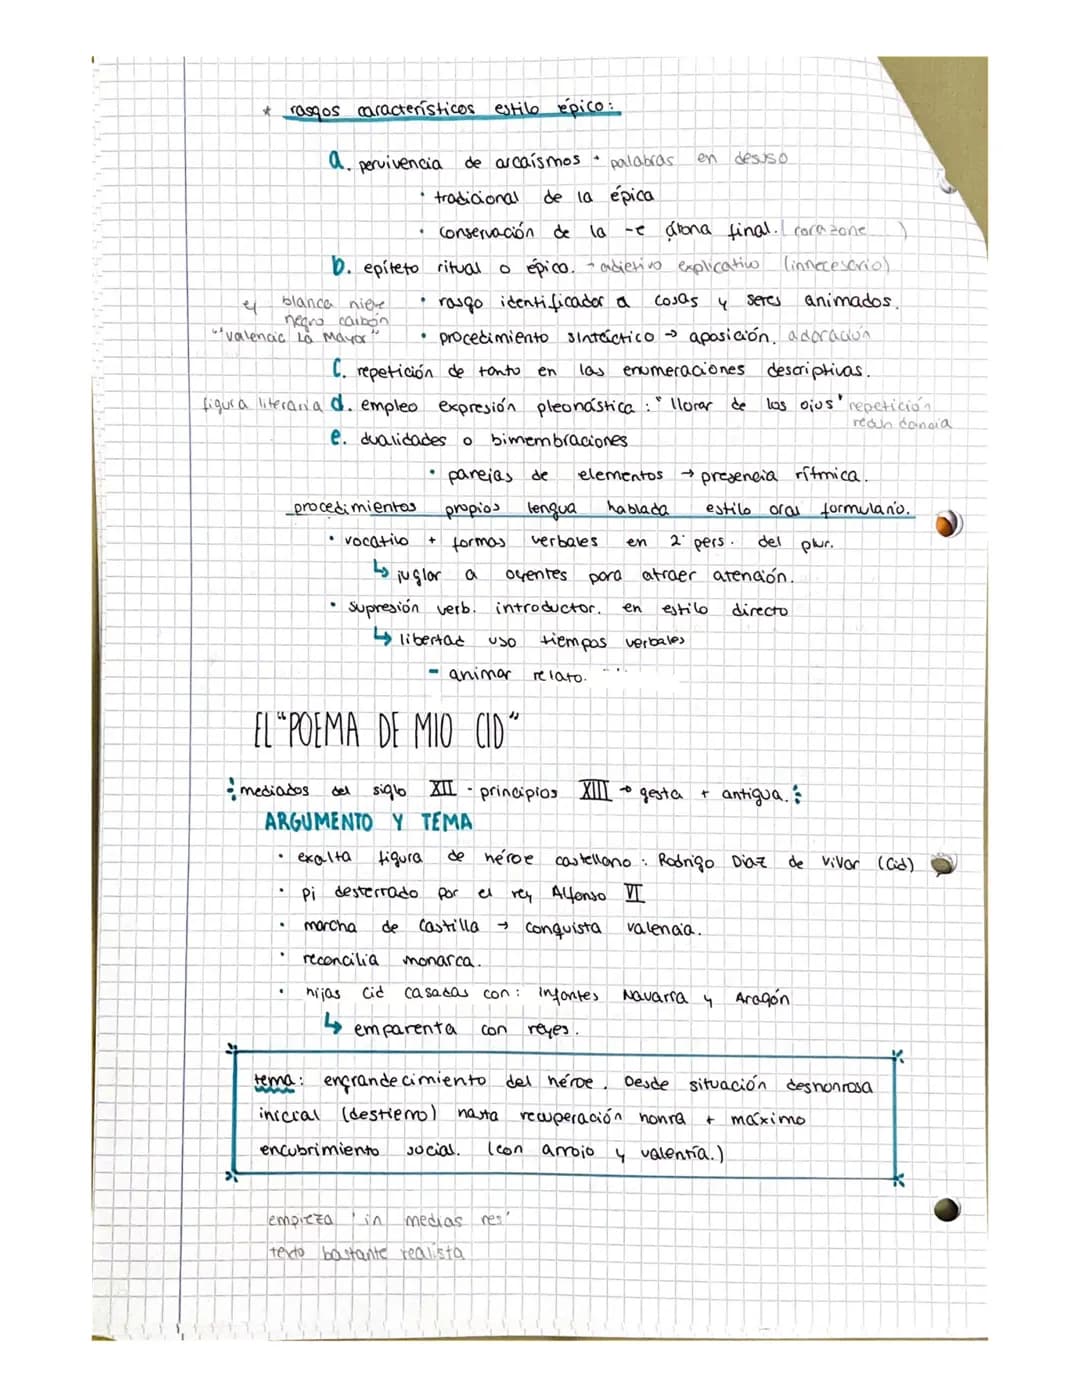 * rasgos característicos estilo épico:
a. pervivencia de arcaísmos · palabras en desuso
· tradicional de la épica
· conservación de la -e átona final. (corazone )
b. epíteto ritual o épico. → adjetivo explicativo (innecesario)
ej blanca nieve · rasgo identificador a cosas y seres animados.
negro carbón
"valencia la mayor" · procedimiento sintáctico → aposición. adoración
c. repetición de tanto en las enumeraciones descriptivas.
figura literaria d. empleo expresión pleonástica : "llorar de los ojos" repetición
redundancia
e. dualidades o bimembraciones
· parejas de elementos → presencia rítmica.
procedimientos propios lengua hablada estilo oral formulario.
· vocativo + formas verbales en 2ª pers. del plur.
↳ juglar a oyentes para atraer atención.
· supresión verb. introductor. en estilo directo
↳ libertad uso tiempos verbales
- animar relato.
EL "POEMA DE MIO CID"
mediados del siglo XII - principios XIII → gesta + antigua.
ARGUMENTO Y TEMA
· exalta figura de héroe castellano : Rodrigo Diaz de Vivar (Cid)
· pi desterrado por el rey Alfonso VI
· marcha de Castilla → conquista valencia.
· reconcilia monarca.
· hijas Cid casadas con : infantes Navarra y Aragón
↳ emparenta con reyes.
tema: engrandecimiento del héroe. Desde situación deshonrosa
inicial (destierro) hasta recuperación honra + máximo
encubrimiento social. (con arrojo y valentía.)
empieza 'in medias res'
texto bastante realista